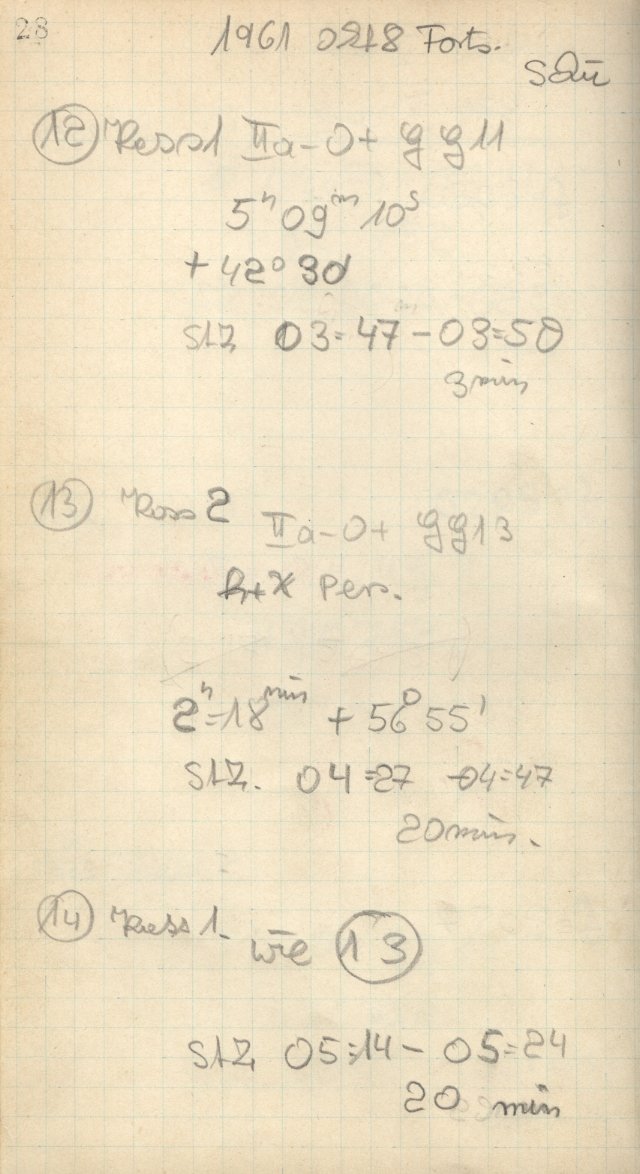 28
1961 0218 Forts.
SDü
12 Kass1 IIa-O+ gg11
5h 09m 10s
+42° 30'
StZ 03=47 - 03=50
3min
13 Kass2 IIa-O+ gg13
h+χ Pers.
2h=18min + 56° 55'
StZ. 04=27 - 04=47
20min.
14 Kass1. wie 13
StZ 05=14 - 05=24
20 min